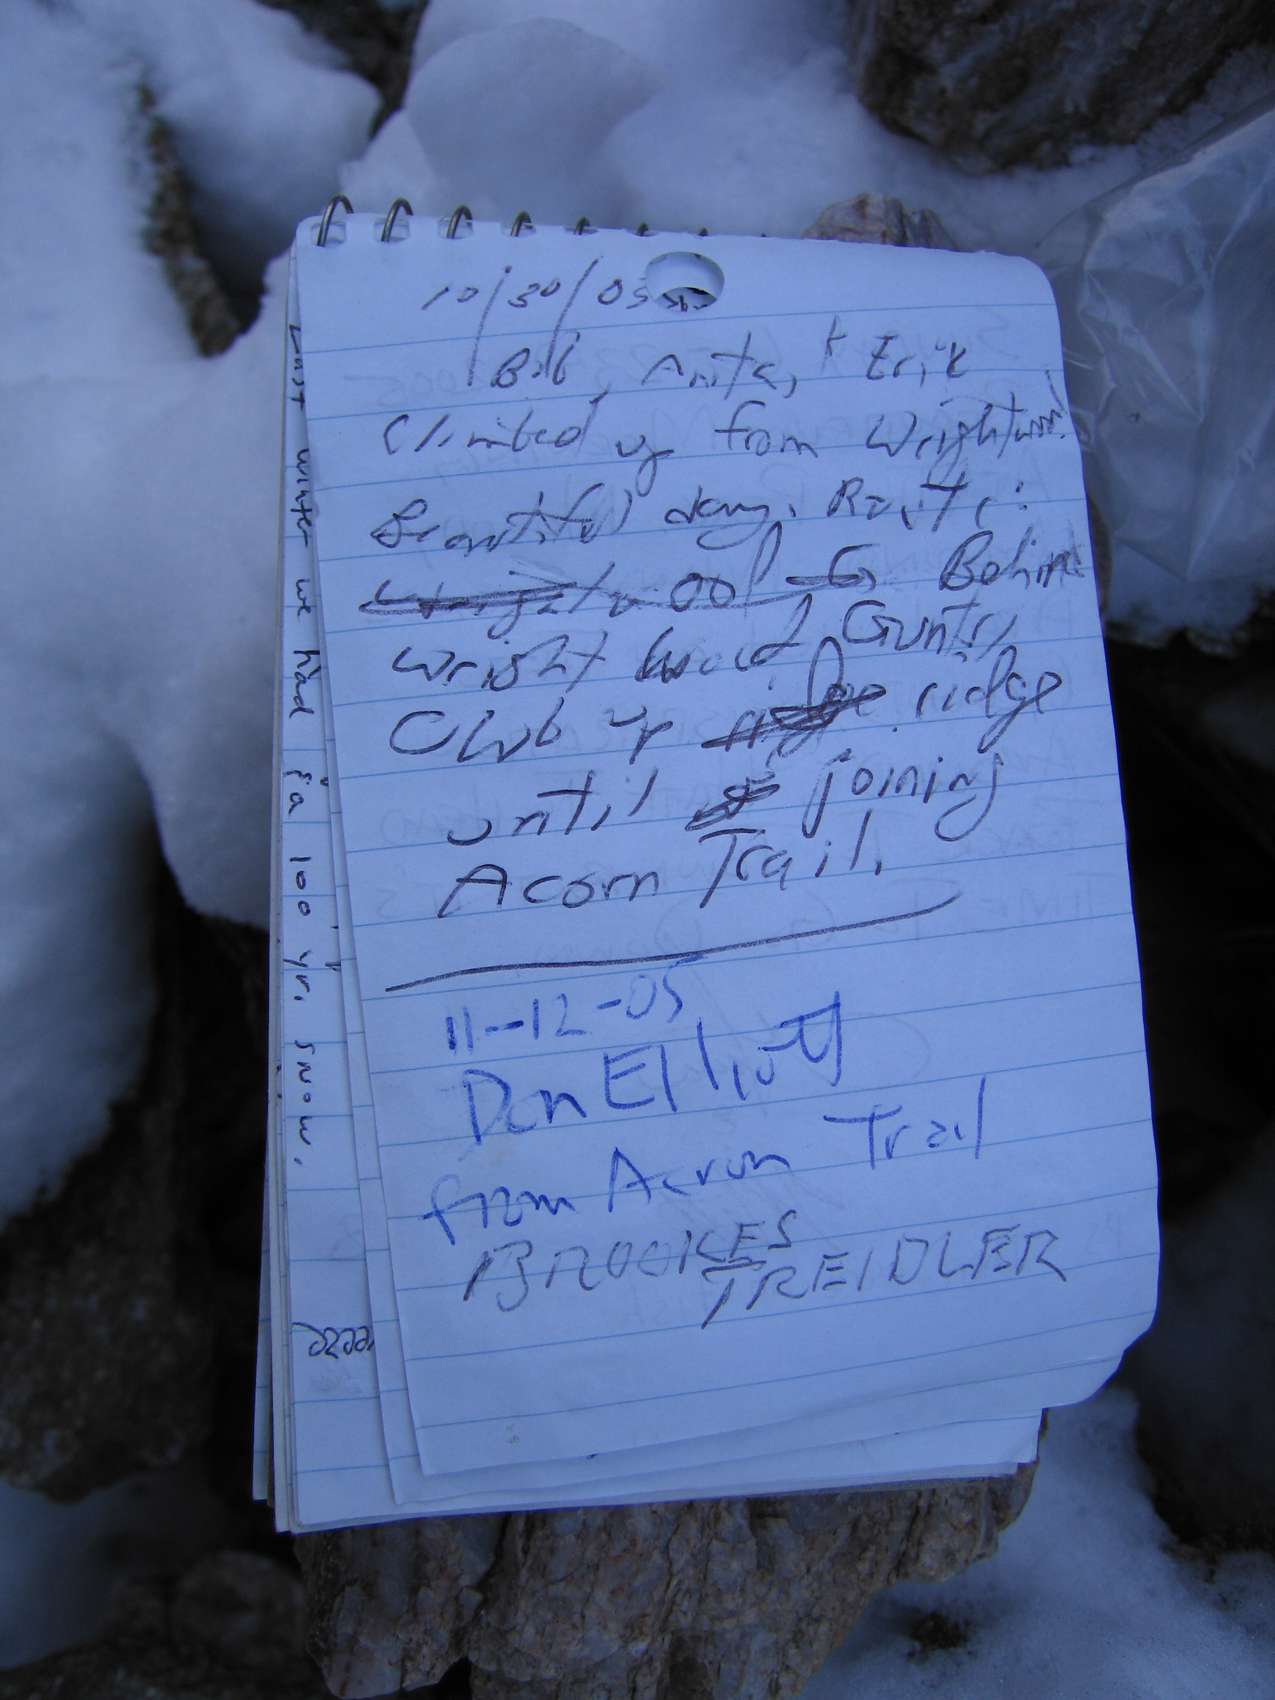 10/30/05
Bob, Anita, + Erik
Climbed up from Wrightwood.
Beautiful day. Route:
Behind
Wrightwood Country
Club up ridge
until joining
Acorn Trail.
11-12-05
Don Elliott
from Acorn Trail
BROOKES
TREIDLER
Last winter we had a 100 yr. snow.